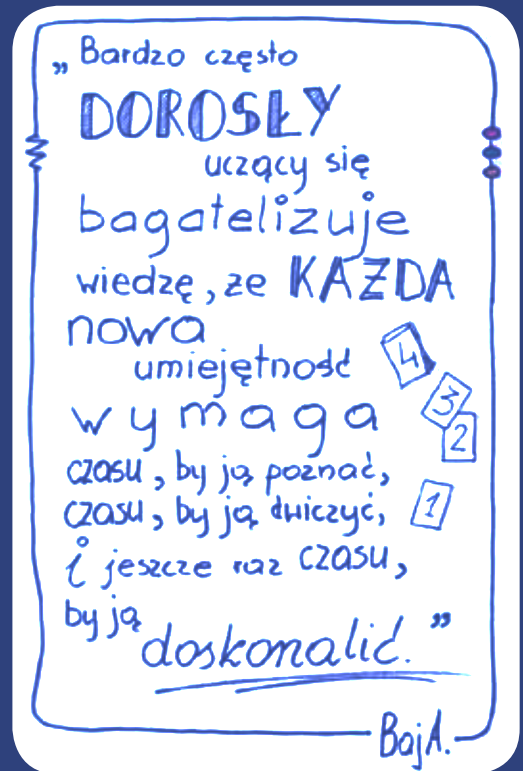 „Bardzo często
DOROSŁY
uczący się
bagatelizuje
wiedzę, że KAŻDA
nowa
umiejętność
wymaga
czasu, by ją poznać,
czasu, by ją ćwiczyć,
i jeszcze raz czasu,
by ją
doskonalić.”
4
3
2
1
Baj A.